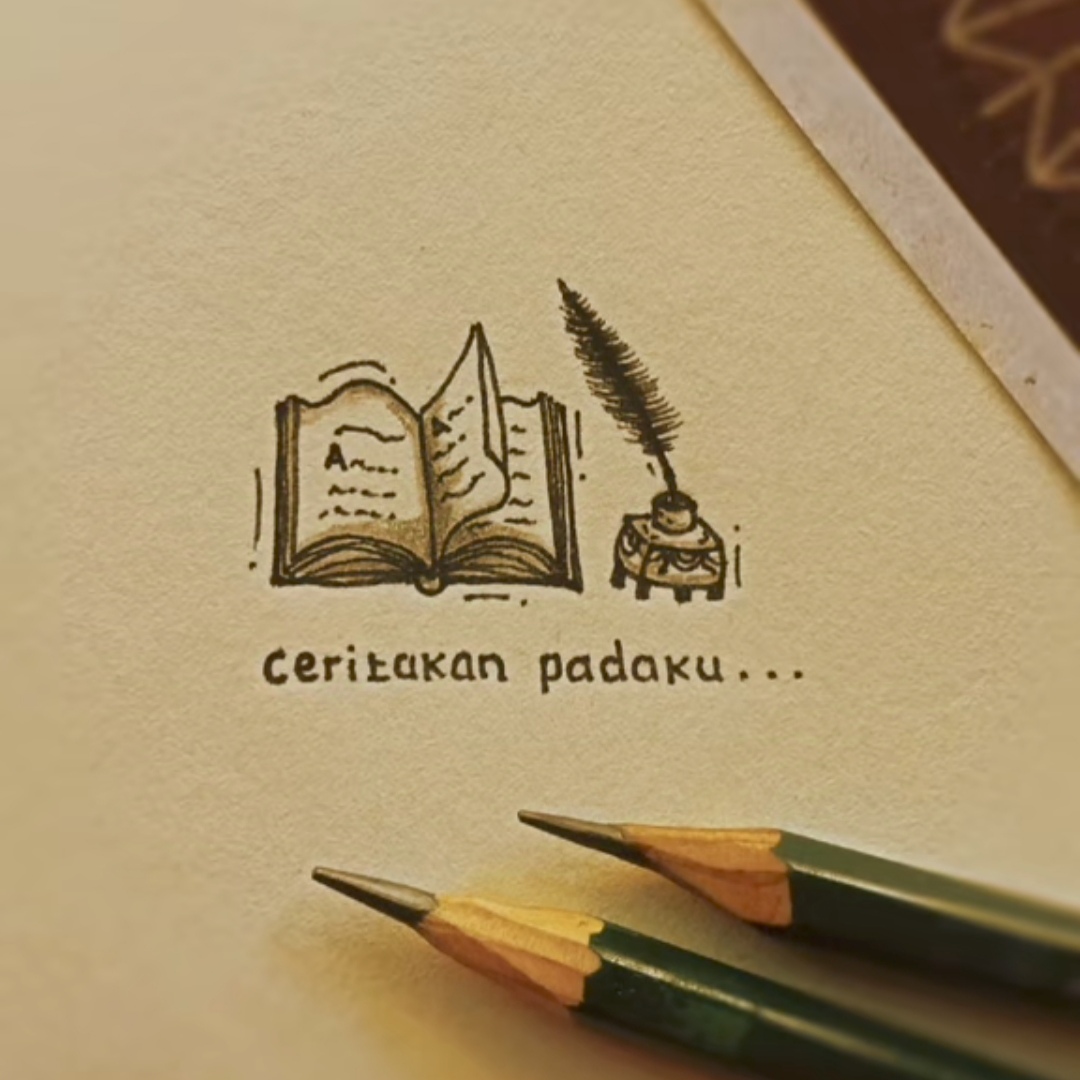 ceritakan padaku...